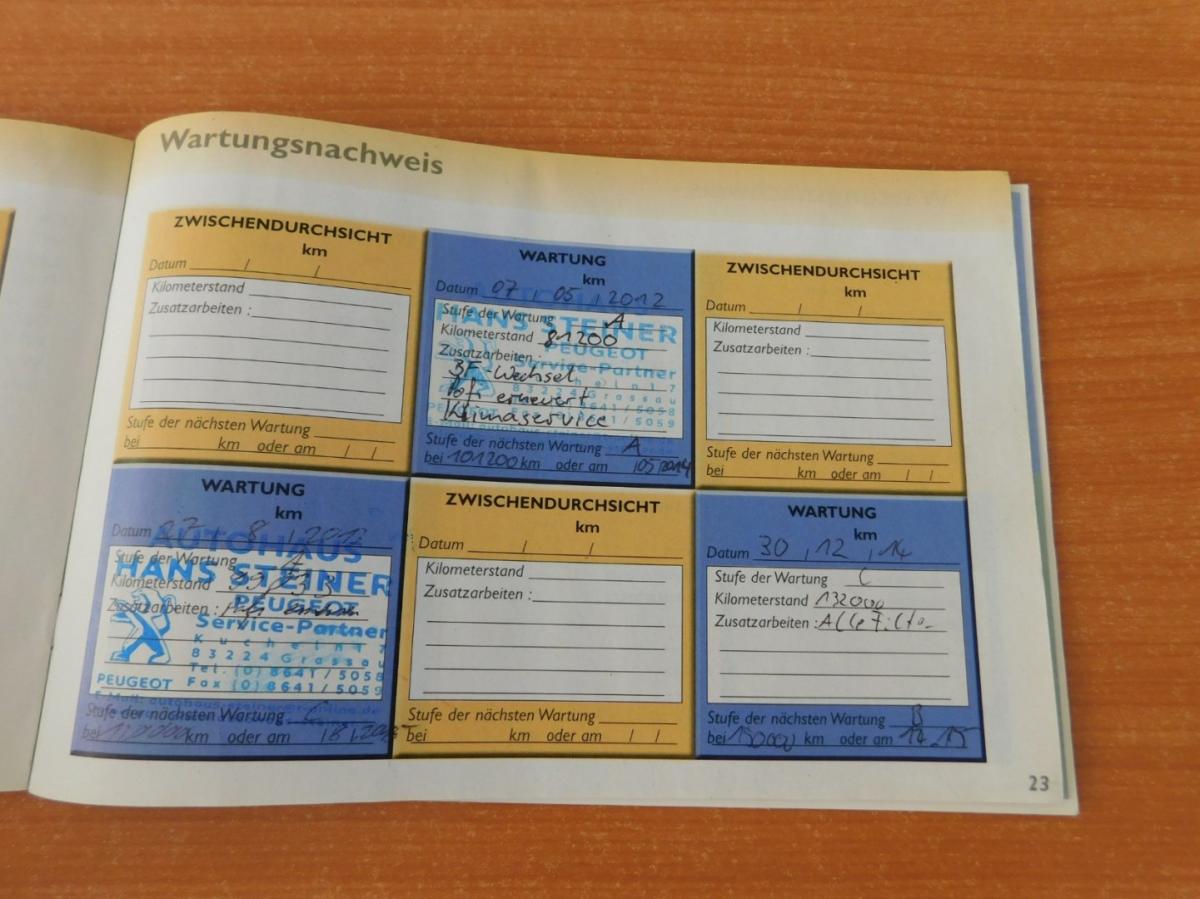 Wartungsnachweis
ZWISCHENDURCHSICHT
km
Datum / /
Kilometerstand
Zusatzarbeiten :
Stufe der nächsten Wartung
bei km oder am / /
WARTUNG
km
Datum 07 / 05 / 2012
Stufe der Wartung A
HANS STEINER
Kilometerstand 81200
PEUGEOT
Zusatzarbeiten :
Service-Partner
BF-Wechsel
83224 Grassau
erneuert
Klimaservice
PEUGEOT
Stufe der nächsten Wartung A
bei 101200 km oder am /05/2014
ZWISCHENDURCHSICHT
km
Datum / /
Kilometerstand
Zusatzarbeiten :
Stufe der nächsten Wartung
bei km oder am / /
WARTUNG
km
Datum
AUTOHAUS
Stufe der Wartung
HANS STEINER
Kilometerstand
PEUGEOT
Zusatzarbeiten :
Service-Partner
83224 Grassau
Tel. (0) 8641 / 5058
PEUGEOT Fax (0) 8641 / 5059
Stufe der nächsten Wartung
bei km oder am
ZWISCHENDURCHSICHT
km
Datum / /
Kilometerstand
Zusatzarbeiten :
Stufe der nächsten Wartung
bei km oder am / /
WARTUNG
km
Datum 30 / 12 / 14
Stufe der Wartung C
Kilometerstand 132000
Zusatzarbeiten : Alle
Stufe der nächsten Wartung B
bei 150000 km oder am 12.15
23